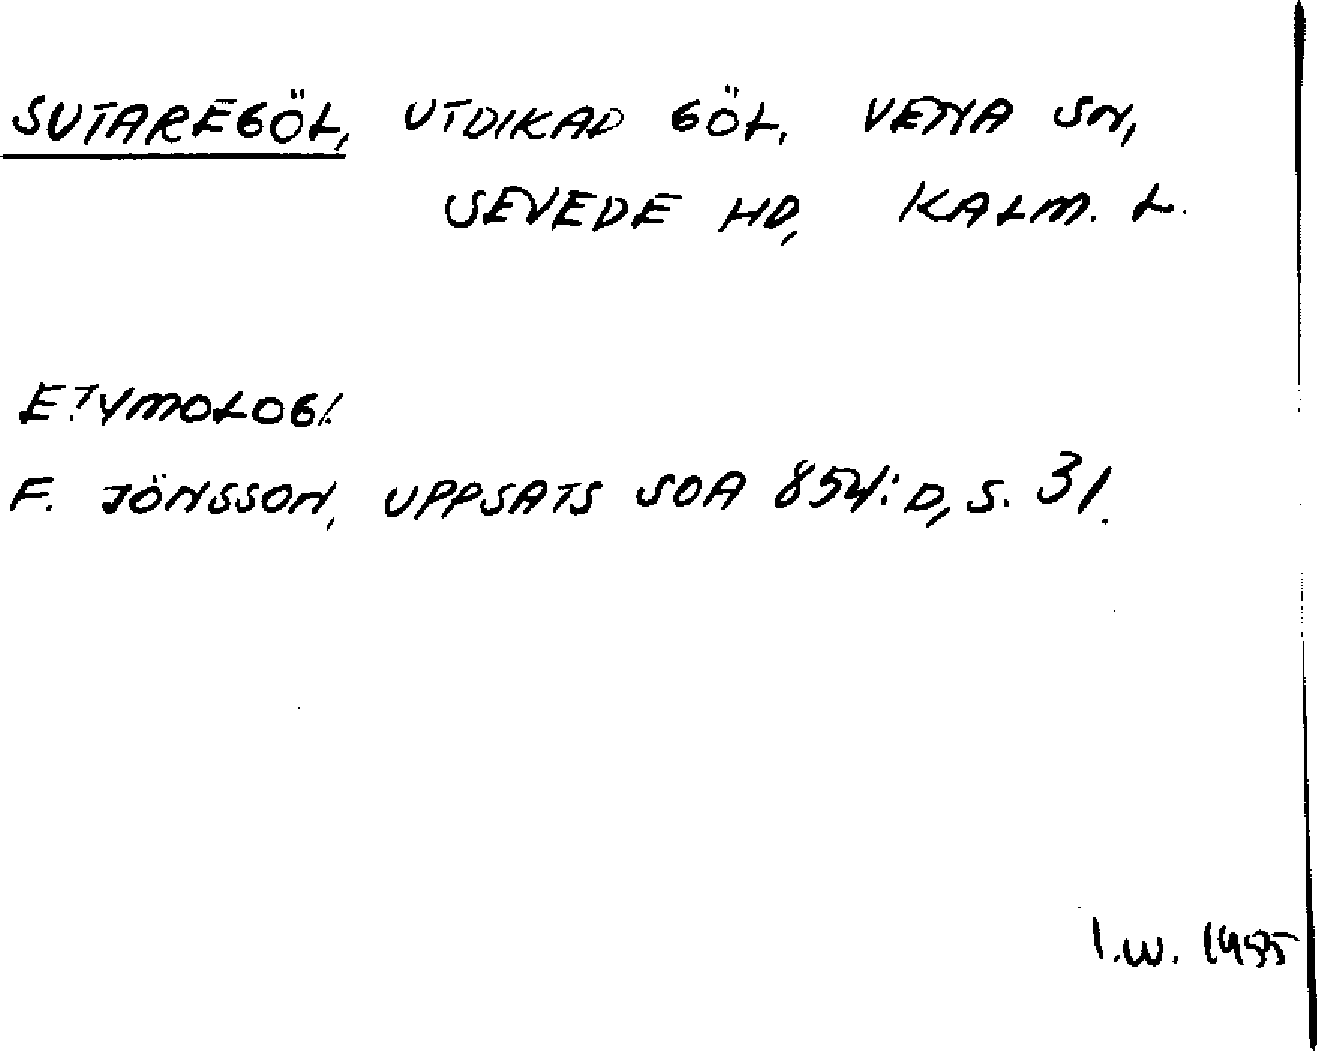 SUTAREGÖL, UTDIKAD GÖL, VENA SN,
SEVEDE HD, KALM. L.
ETYMOLOGI.
F. JÖNSSON, UPPSATS SOA 854:D, S. 31.
I.W. 1985